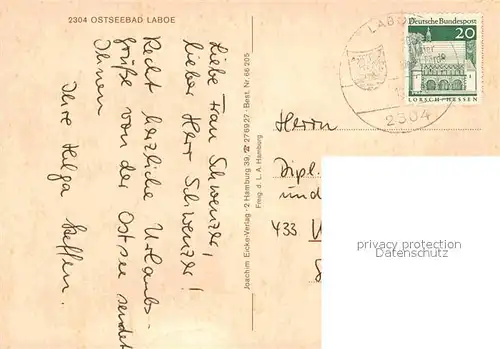 2304 OSTSEEBAD LABOE
Liebe Frau Schwenzer,
lieber Herr Schwenzer!
Recht herzliche Urlaubs-
grüße von der Ostsee sendet
Ihnen
Ihre Helga Steffen.
Joachim Eicke-Verlag · 2 Hamburg 39, ☎ 276927 · Best. Nr. 66205
Freig. d. L. A. Hamburg
LABO
2304
Deutsche Bundespost
20
LORSCH/HESSEN
Herrn
Dipl.
und
433
privacy protection
AnsichtskartenWelt.com